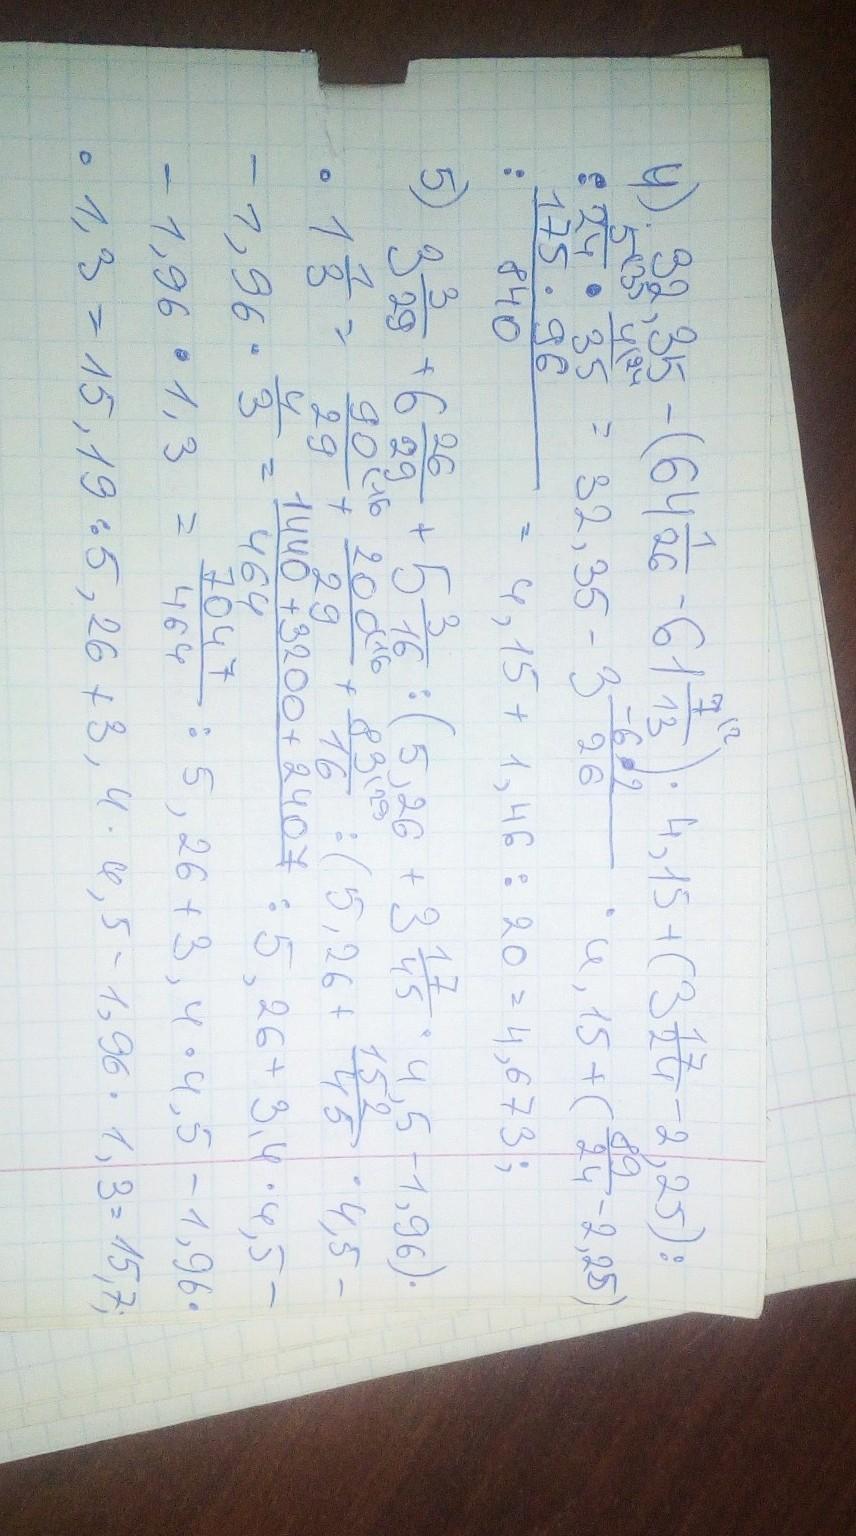 4) 32,35 - (64 1/26 - 61 7/13 (2) · 4,15 + (3 17/24 - 2,25) :
: 5(35/24 · 4(24/35 = 32,35 - 3 -6·2/26 · 4,15 + (89/24 - 2,25)
: 175·96/840 = 4,15 + 1,46 : 20 = 4,673;
5) 3 3/29 + 6 26/29 + 5 3/16 : (5,26 + 3 17/45 · 4,5 - 1,96) ·
· 1 1/3 = 90(16/29 + 200(16/29 + 83(29/16 : (5,26 + 152/45 · 4,5 -
- 1,96 · 4/3 = 1440+3200+2407/464 : 5,26 + 3,4 · 4,5 -
- 1,96 · 1,3 = 7047/464 : 5,26 + 3,4 · 4,5 - 1,96 ·
· 1,3 = 15,19 : 5,26 + 3,4 · 4,5 - 1,96 · 1,3 = 15,7;